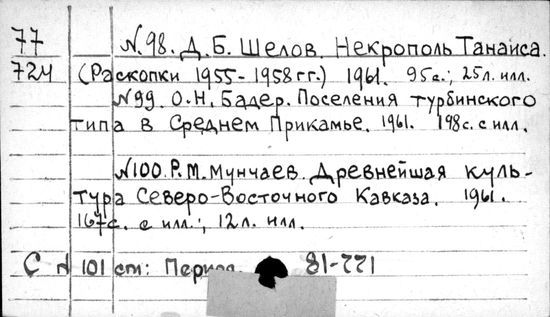 77 N.98. Д.Б. Шелов. Некрополь Танаиса.
724 (Раскопки 1955-1958гг.) 1961. 95с.; 25л. илл.
N99. О.Н. Бадер. Поселения турбинского
типа в Среднем Прикамье. 1961. 198с. с илл.
N100. Р.М. Мунчаев. Древнейшая куль-
тура Северо-Восточного Кавказа. 1961.
167с. с илл.; 12л. илл.
С N 101 ст: Период. 81-771